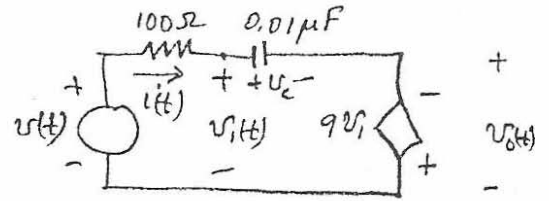 100Ω 0.01μF
+ i(t) + + v_c − − +
v(t) v₁(t) 9v₁ v₀(t)
− − + −